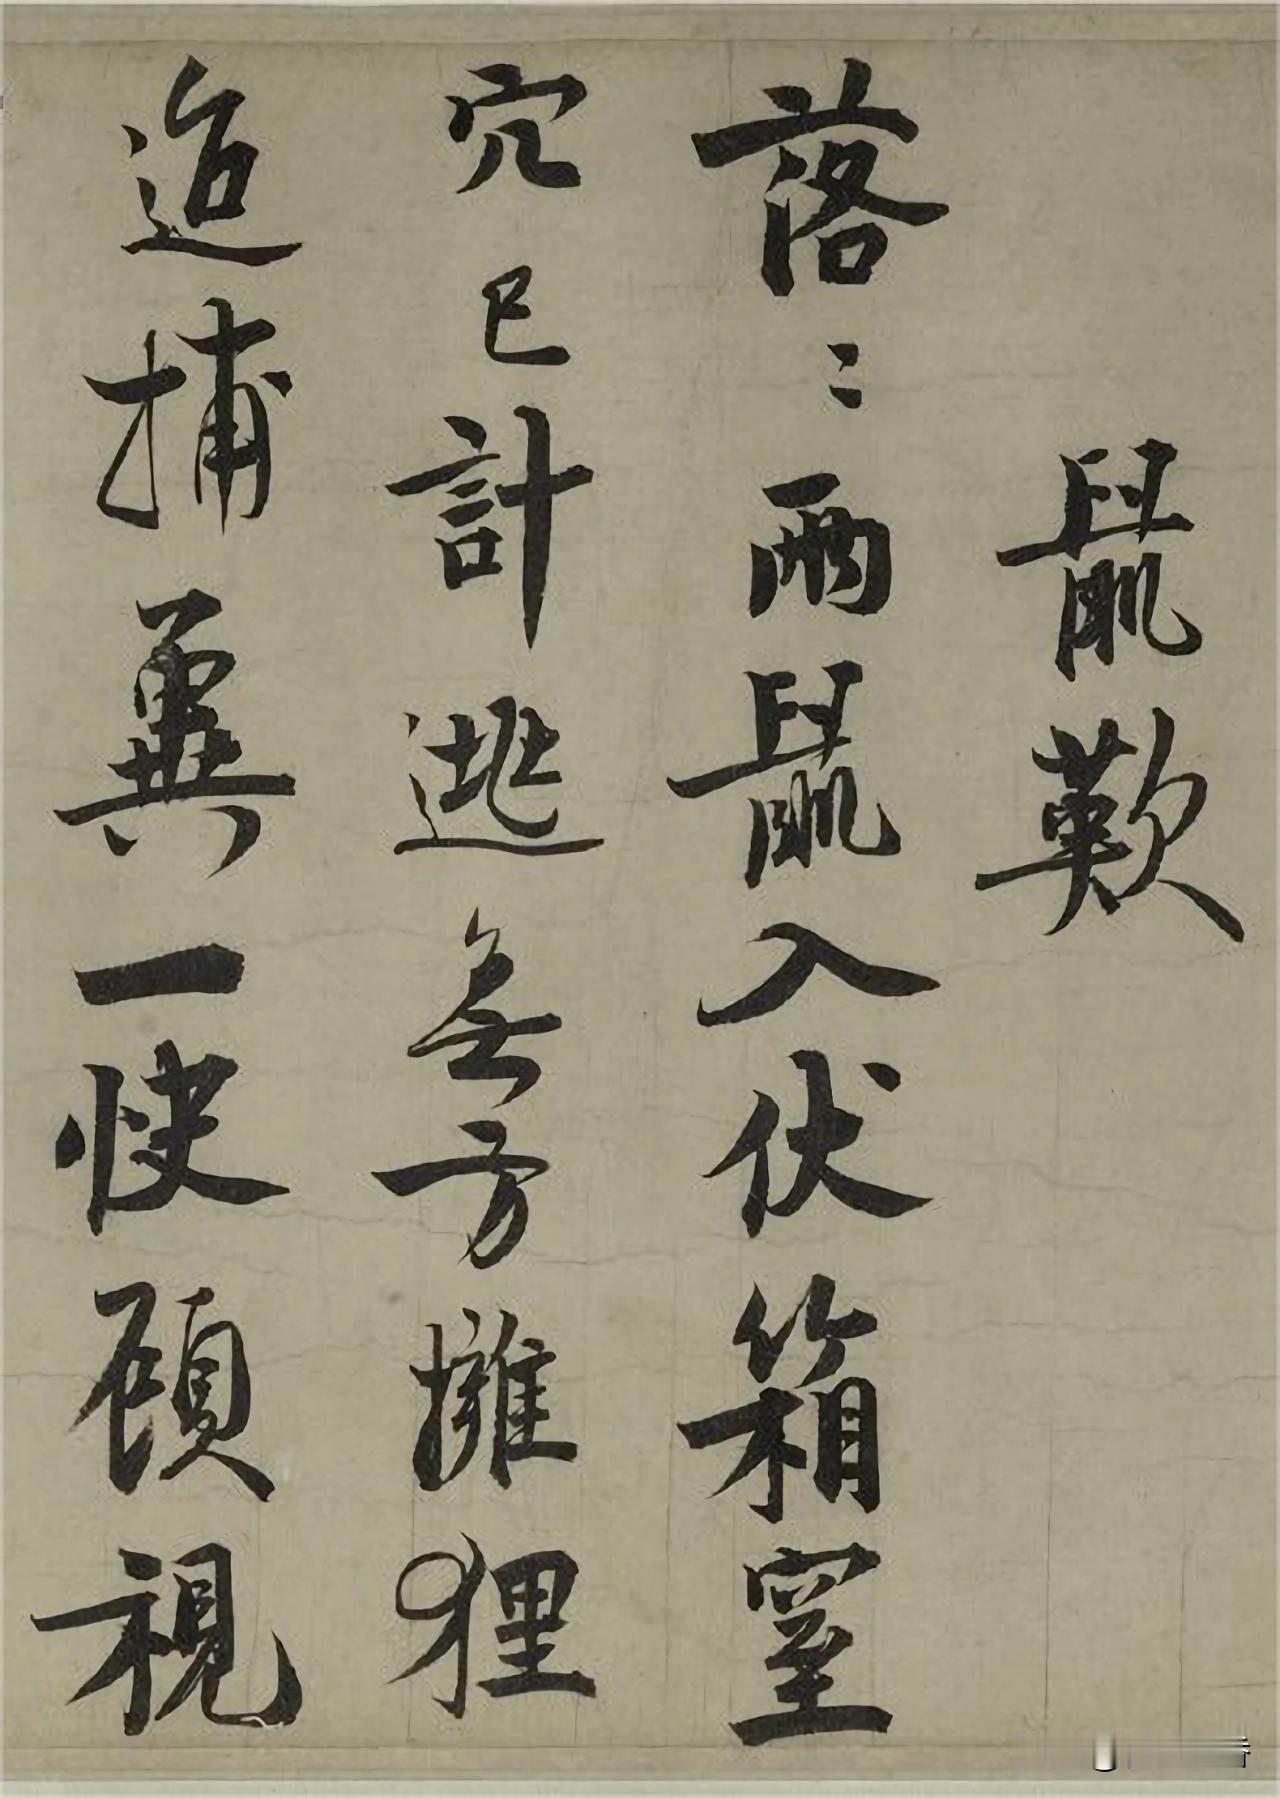 鼠歎
落〻兩鼠入伏箱窒
穴已計逃無方擁狸
追捕冀一快顧視